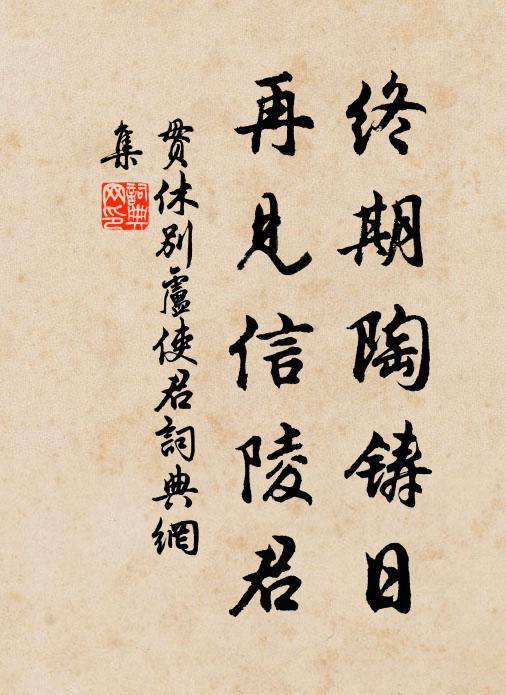 终期陶铸日
再见信陵君
贯休别盧使君詞典網
集
詞典网印